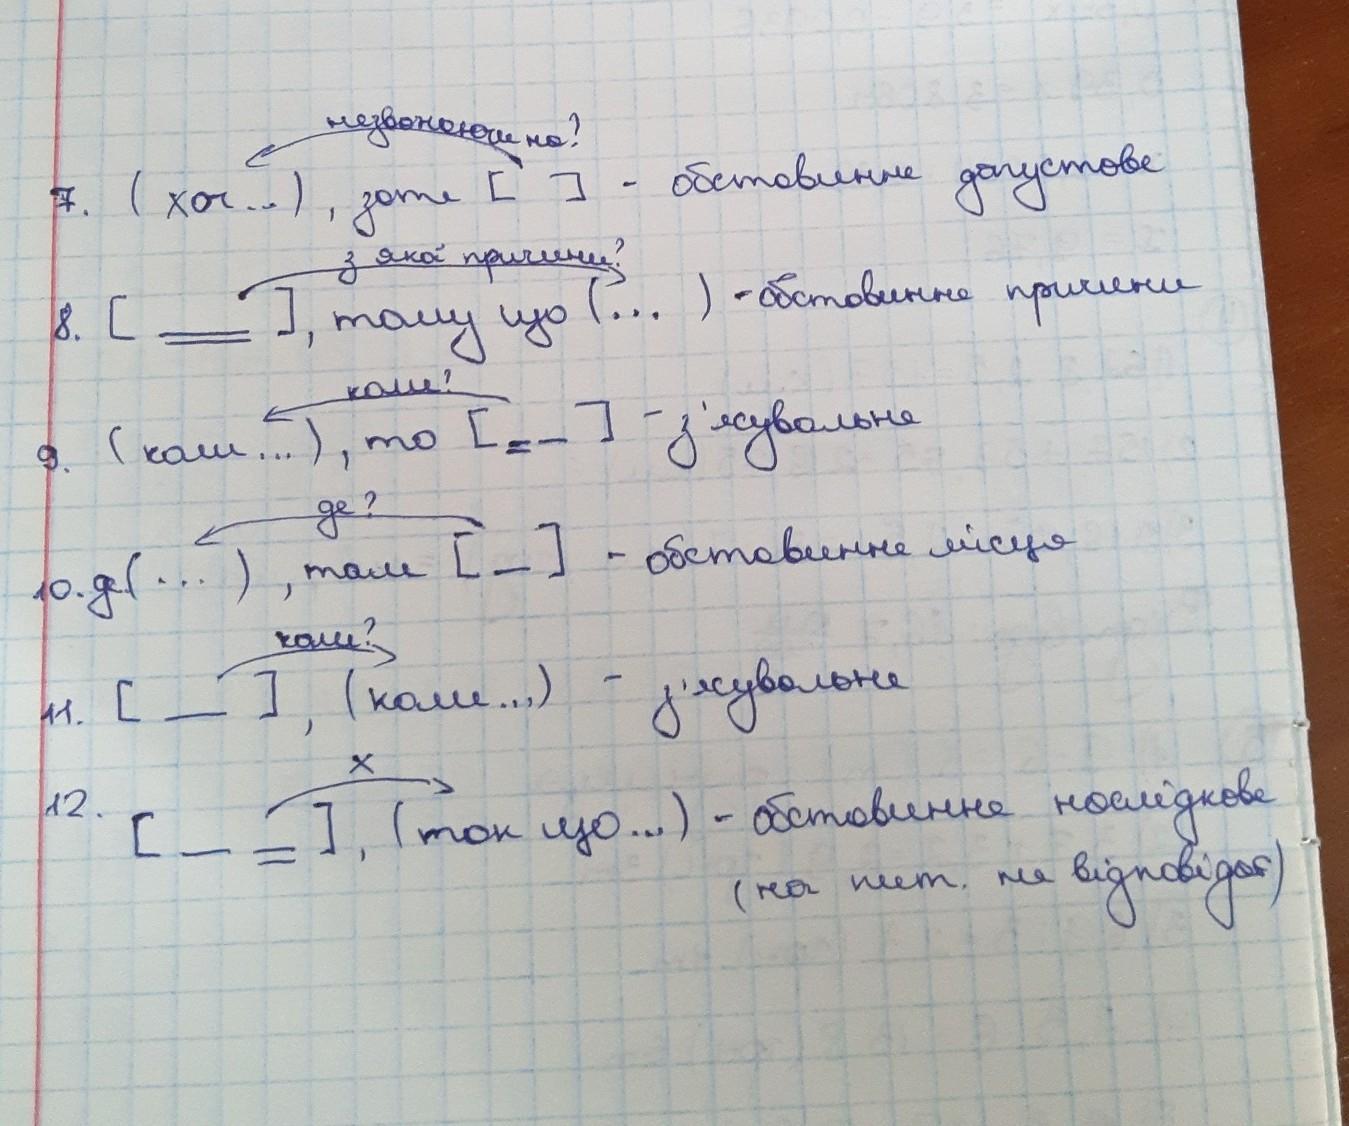 незважаючи на?
7. (хоч...), зате [ ] - обставинне допустове
з якої причини?
8. [ ], тому що (...) - обставинне причини
коли?
9. (коли...), то [ ] - з'ясувальне
де?
10. де(...), там [ ] - обставинне місця
коли?
11. [ ], (коли...) - з'ясувальне
х
12. [ ], (так що...) - обставинне наслідкове
(на пит. не відповідає)